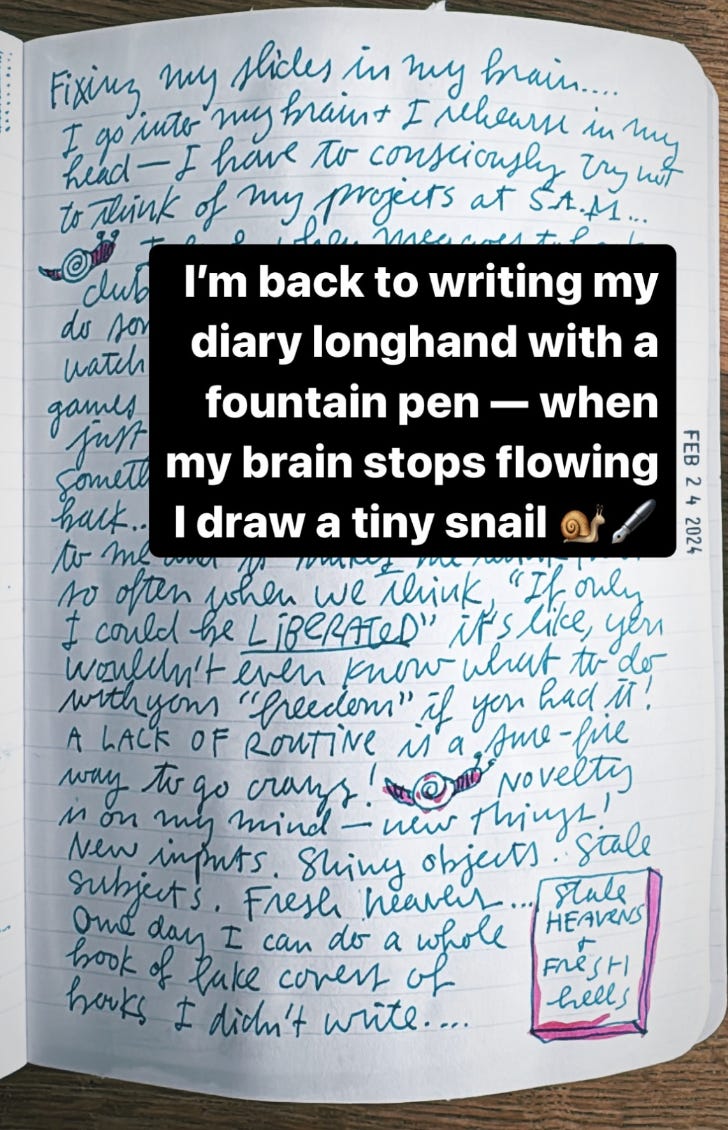 Fixing my slides in my brain....
I go into my brain + I rehearse in my
head — I have to consciously try not
to think of my projects at 5 A.M...
club
do
watch
games
just
back..
to me
so often when we think, "If only
I could be LIBERATED" it's like, you
wouldn't even know what to do
with your "freedom" if you had it!
A LACK OF ROUTINE is a sure-fire
way to go crazy! Novelty
is on my mind — new things!
New inputs. Shiny objects. Stale
subjects. Fresh heavens...
One day I can do a whole
book of fake covers of
books I didn't write....
Stale
HEAVENS
+
FRESH
hells
I'm back to writing my
diary longhand with a
fountain pen — when
my brain stops flowing
I draw a tiny snail 🐌🖋️
FEB 24 2024